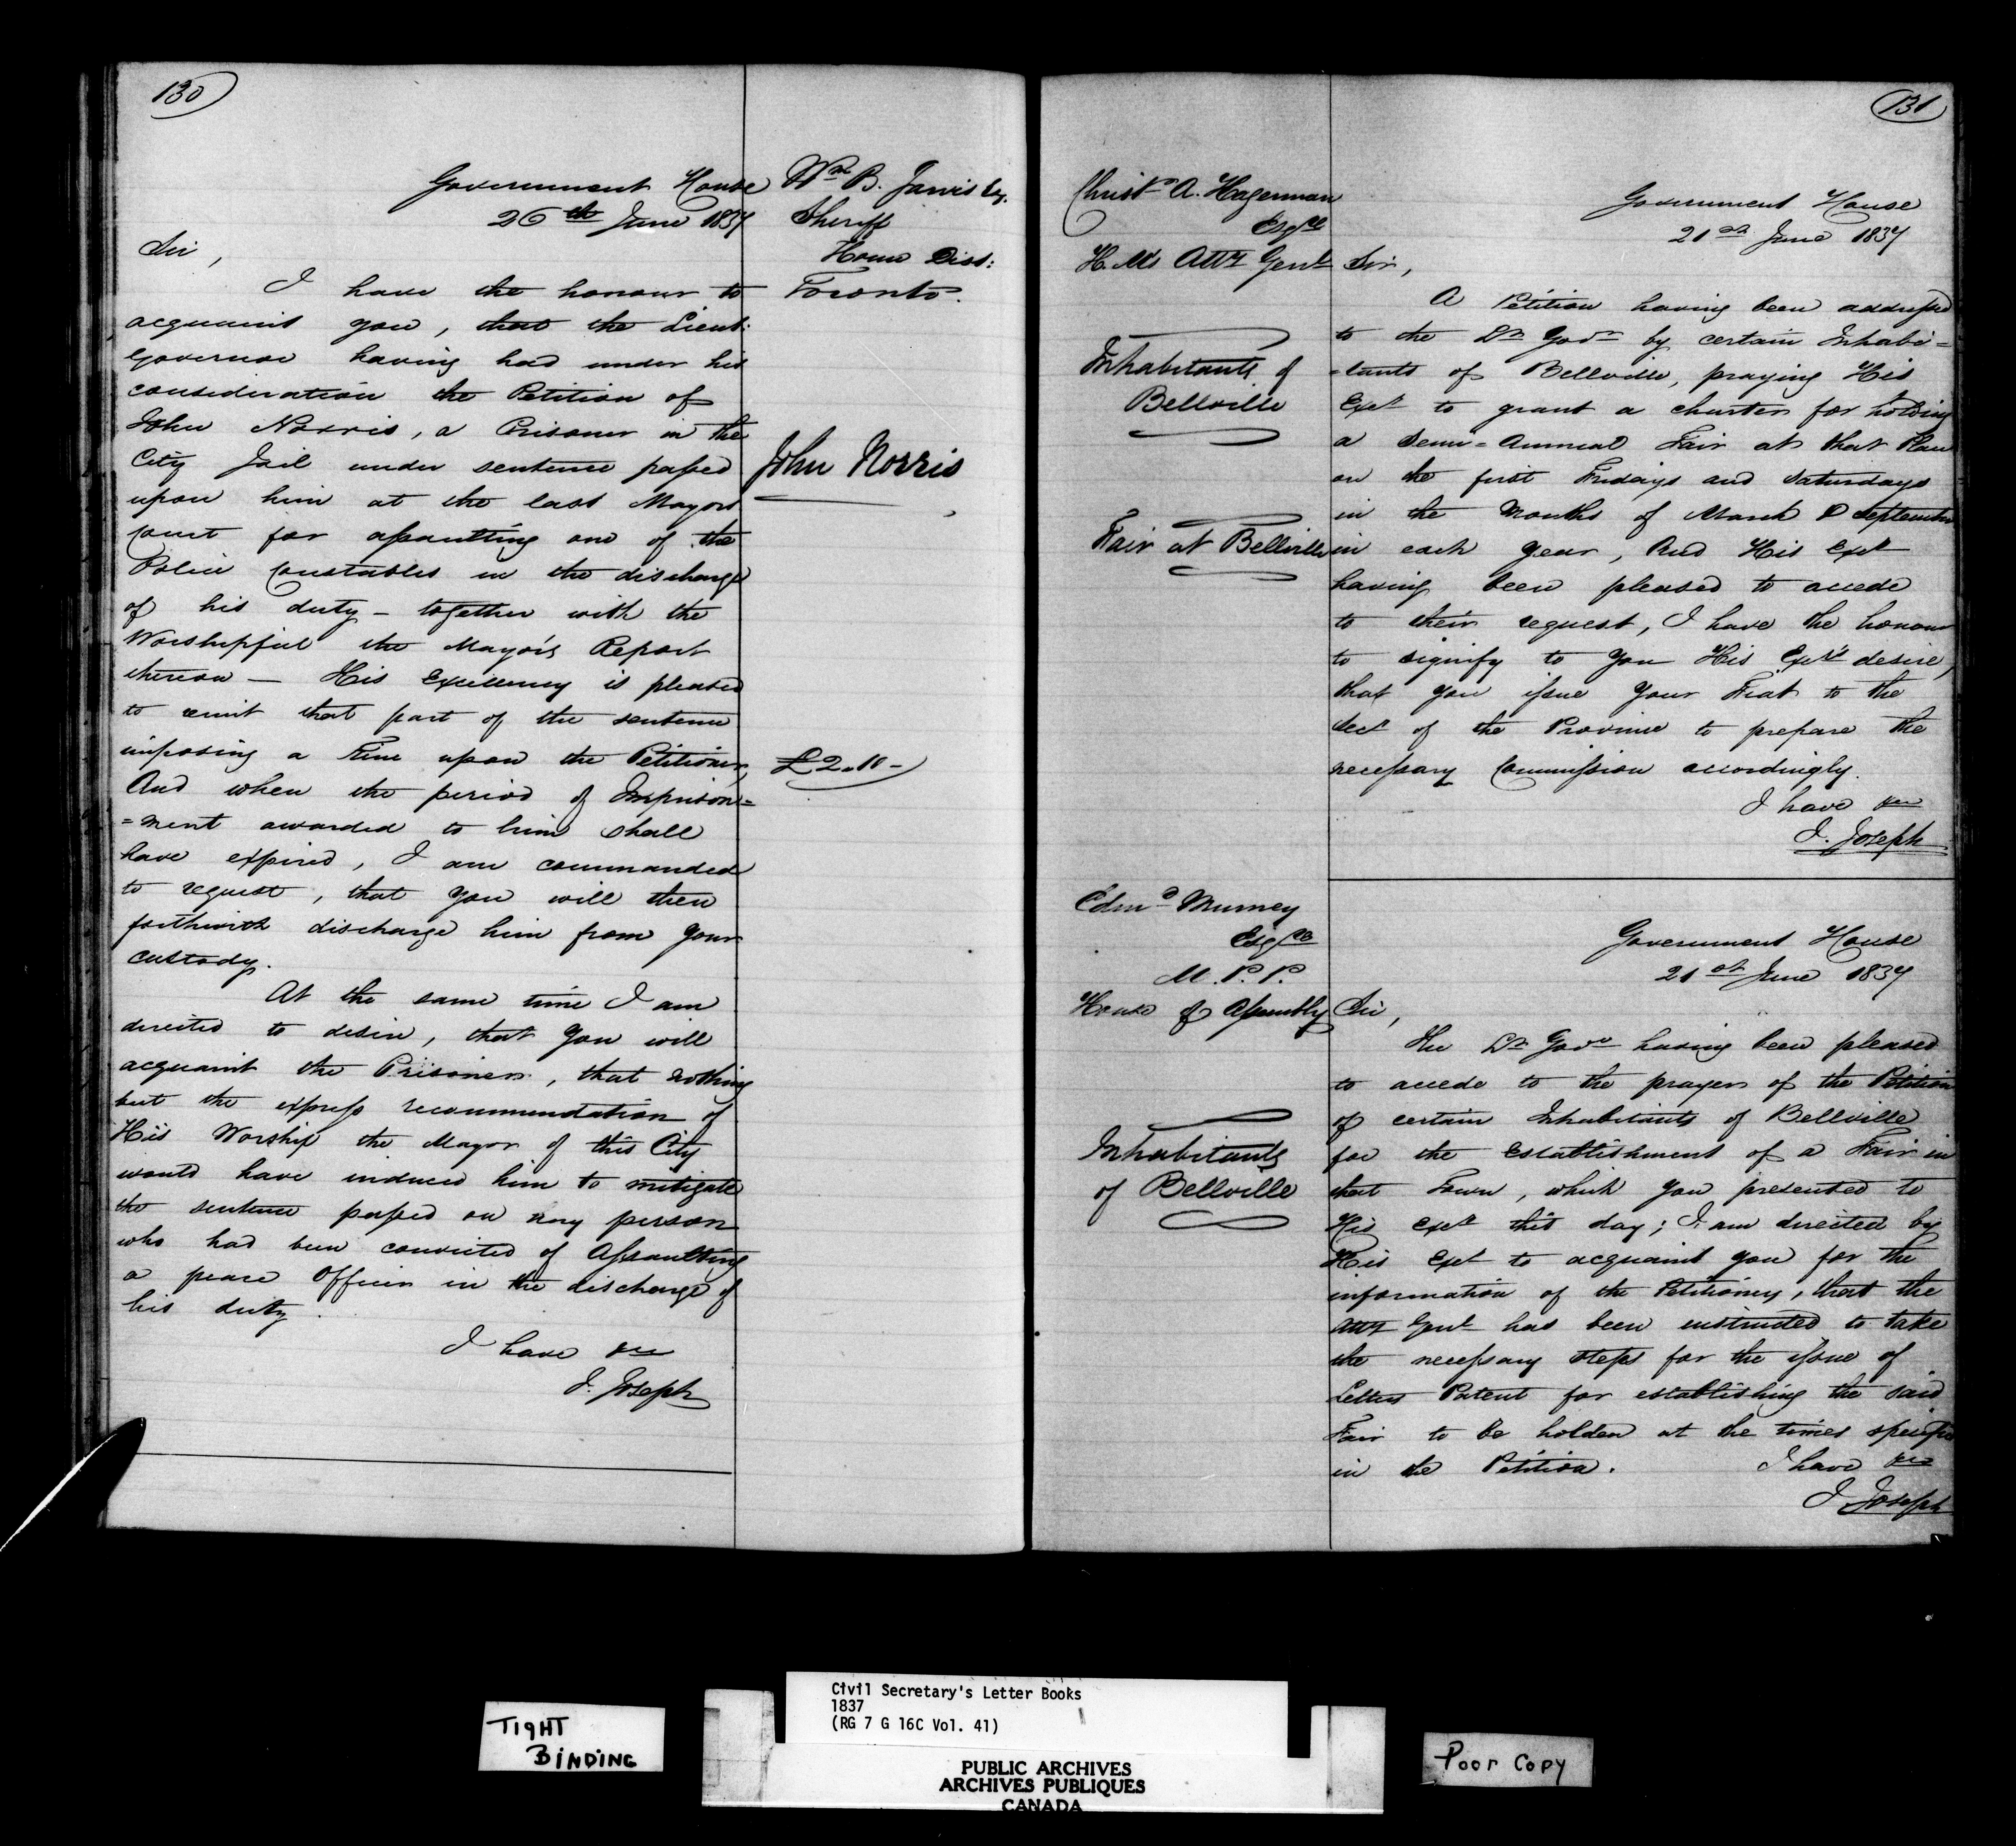 130
Government House
26th June 1837
Wm B. Jarvis Esq.
Sheriff
Home Dist:
Toronto.
Sir,
I have the honour to
acquaint you, that the Lieut:
Governor having had under his
consideration the Petition of
John Norris, a Prisoner in the
City Jail under sentence passed
upon him at the last Mayors
Court for assaulting one of the
Police Constables in the discharge
of his duty - together with the
Worshipful the Mayor's Report
thereon - His Excellency is pleased
to remit that part of the sentence
imposing a Fine upon the Petitioner,
And when the period of Imprison=
=ment awarded to him shall
have expired, I am commanded
to request, that you will then
forthwith discharge him from your
custody.
John Norris
£2.10-
At the same time I am
directed to desire, that you will
acquaint the Prisoner, that nothing
but the express recommendation of
His Worship the Mayor of this City
would have induced him to mitigate
the sentence passed on any person
who had been convicted of Assaulting
a peace Officer in the discharge of
his duty.
I have &c
J. Joseph
131
Christr A. Hagerman
Esqre
H. M's Atty Genl
Government House
21st June 1837
Inhabitants of
Bellville
Fair at Bellville
Sir,
A Petition having been addressed
to the Lt Govr by certain Inhabi=
=tants of Bellville, praying His
Excy to grant a charter for holding
a Semi=Annual Fair at that Place
on the first Fridays and Saturdays
in the Months of March & September
in each year, And His Excy
having been pleased to accede
to their request, I have the honour
to signify to you His Excy's desire,
that you issue your Fiat to the
Secy of the Province to prepare the
necessary Commission accordingly.
I have &c
J. Joseph
Edmd Murney
Esqre
M.P.P.
House of Assembly
Government House
21st June 1837
Inhabitants
of Bellville
Sir,
The Lt Govr having been pleased
to accede to the prayer of the Petition
of certain Inhabitants of Bellville
for the establishment of a Fair in
that Town, which you presented to
His Excy this day; I am directed by
His Excy to acquaint you for the
information of the Petitioners, that the
Atty Genl has been instructed to take
the necessary steps for the issue of
Letters Patent for establishing the said
Fair to be holden at the times specified
in the Petition.
I have &c
J Joseph
TIGHT
BINDING
Civil Secretary's Letter Books
1837
(RG 7 G 16C Vol. 41)
PUBLIC ARCHIVES
ARCHIVES PUBLIQUES
CANADA
Poor Copy